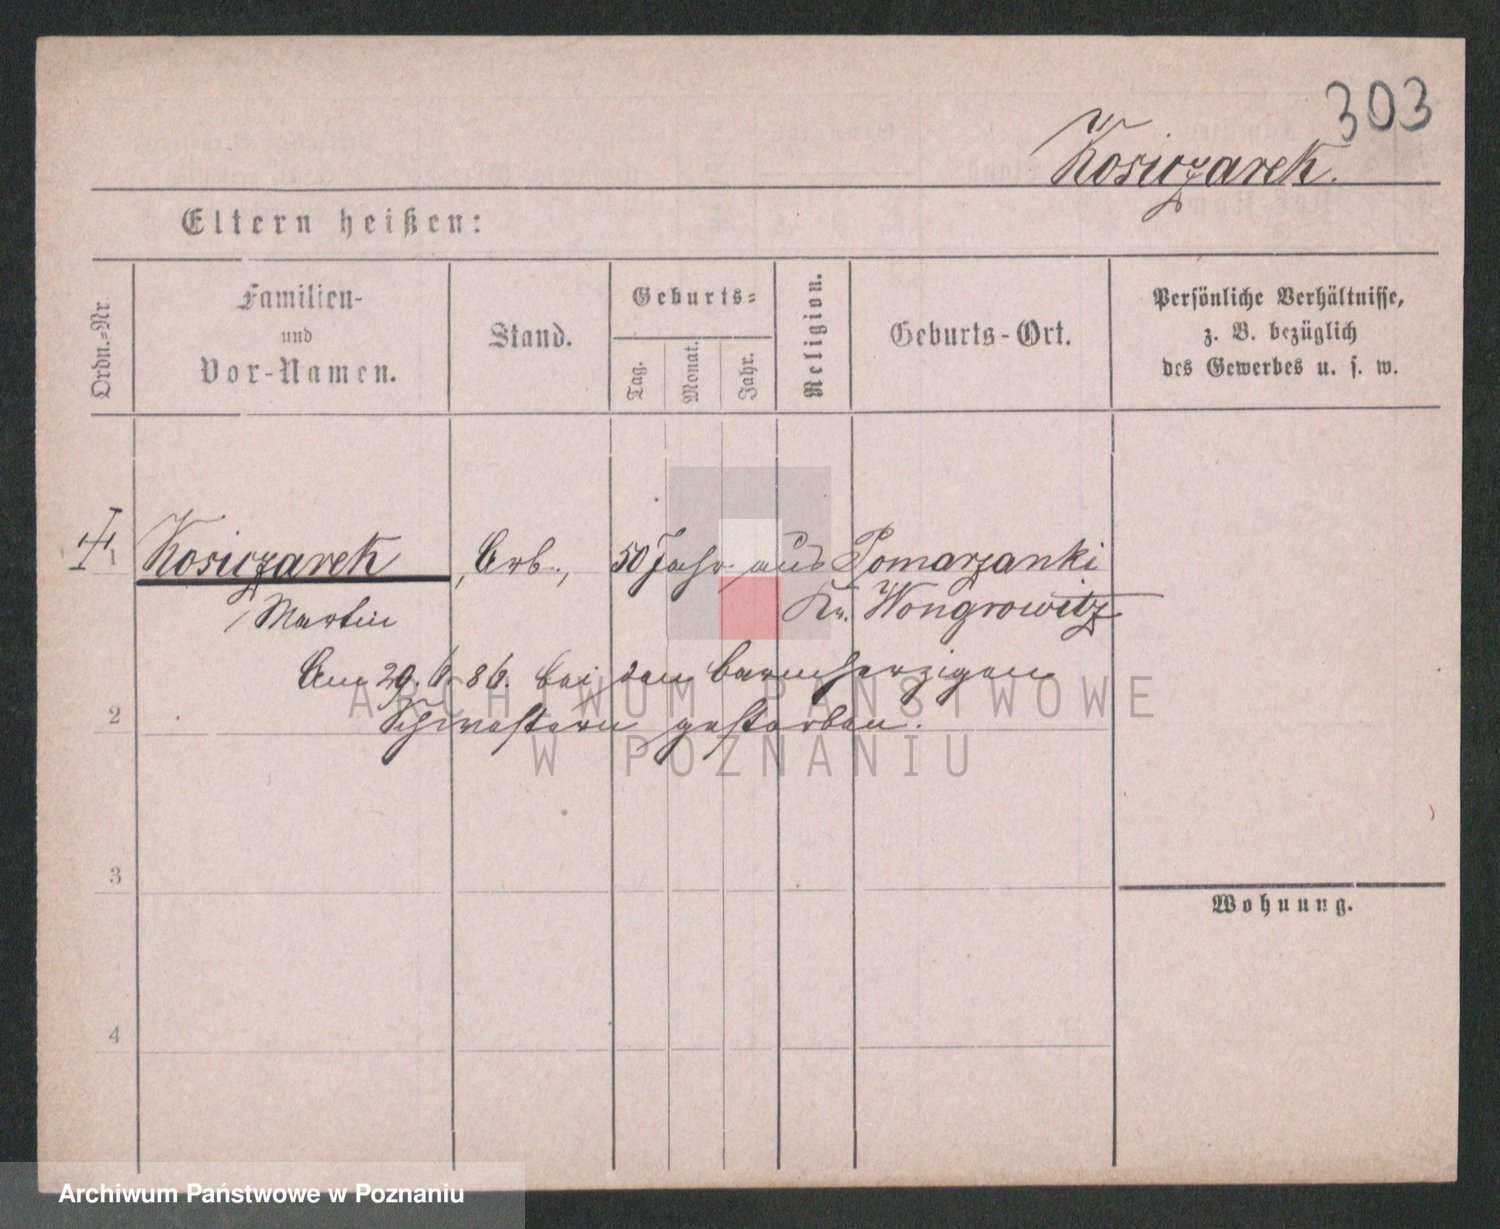 303
Kosiczarek.
Eltern heißen:
Ordn.-Nr.
Familien-
und
Vor-Namen.
Stand.
Geburts-
Tag.
Monat.
Jahr.
Religion.
Geburts-Ort.
Persönliche Verhältnisse,
z. B. bezüglich
des Gewerbes u. s. w.
1 Kosiczarek, Arb., 50 Jahr aus Pomarzanki
Martin Kr. Wongrowitz
Am 29. 6. 86. bei den barmherzigen
ARCHIWUM PAŃSTWOWE
2 Schwestern gestorben.
W POZNANIU
3
Wohnung.
4
Archiwum Państwowe w Poznaniu